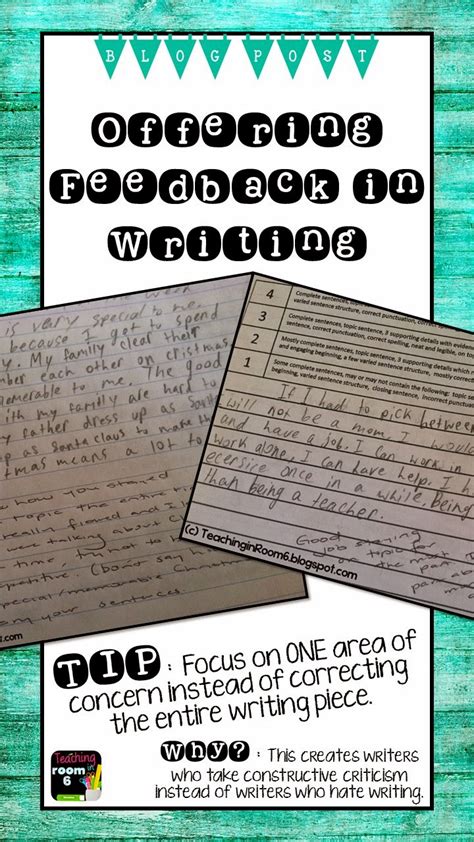 BLOG POST
Offering
Feedback in
Writing
is very special to me.
because I got to spend
y. My family clear their
mber each other on cristmas
memerable to me. The good
with my family are hard to
y father dress up as Santa
up as santa claus to make the
tmas means a lot to
how you stayed
topic the entire
really flowed and I
were talking about
time, try not to
petitive (bond say h
special/memorable Christmas
your sentences.
4 Complete sentences, topic sentence, 3 supporting details with eviden
varied sentence structure, correct punctuation, correct
3 Complete sentences, topic sentence, 3 supporting details
correct punctuation, correct spelling, neat and legible, on
2 Mostly complete sentences, topic sentence, 3 supporting details which
engaging beginning, a few varied sentence structure,
1 Some complete sentences, may or may not contain the following: topic se
beginning, varied sentence structure, closing sentence, incorrect punctuation
If I had to pick between
will not be a mom. I would
and have a job. I can work in
work alone. I can have help. I
ecersise once in a while. being
than being a teacher.
Good
job
topic for
the most
part
(c) TeachinginRoom6.blogspot.com
TIP: Focus on ONE area of
concern instead of correcting
the entire writing piece.
Why?: This creates writers
who take constructive criticism
instead of writers who hate writing.
Teaching
in
room
6